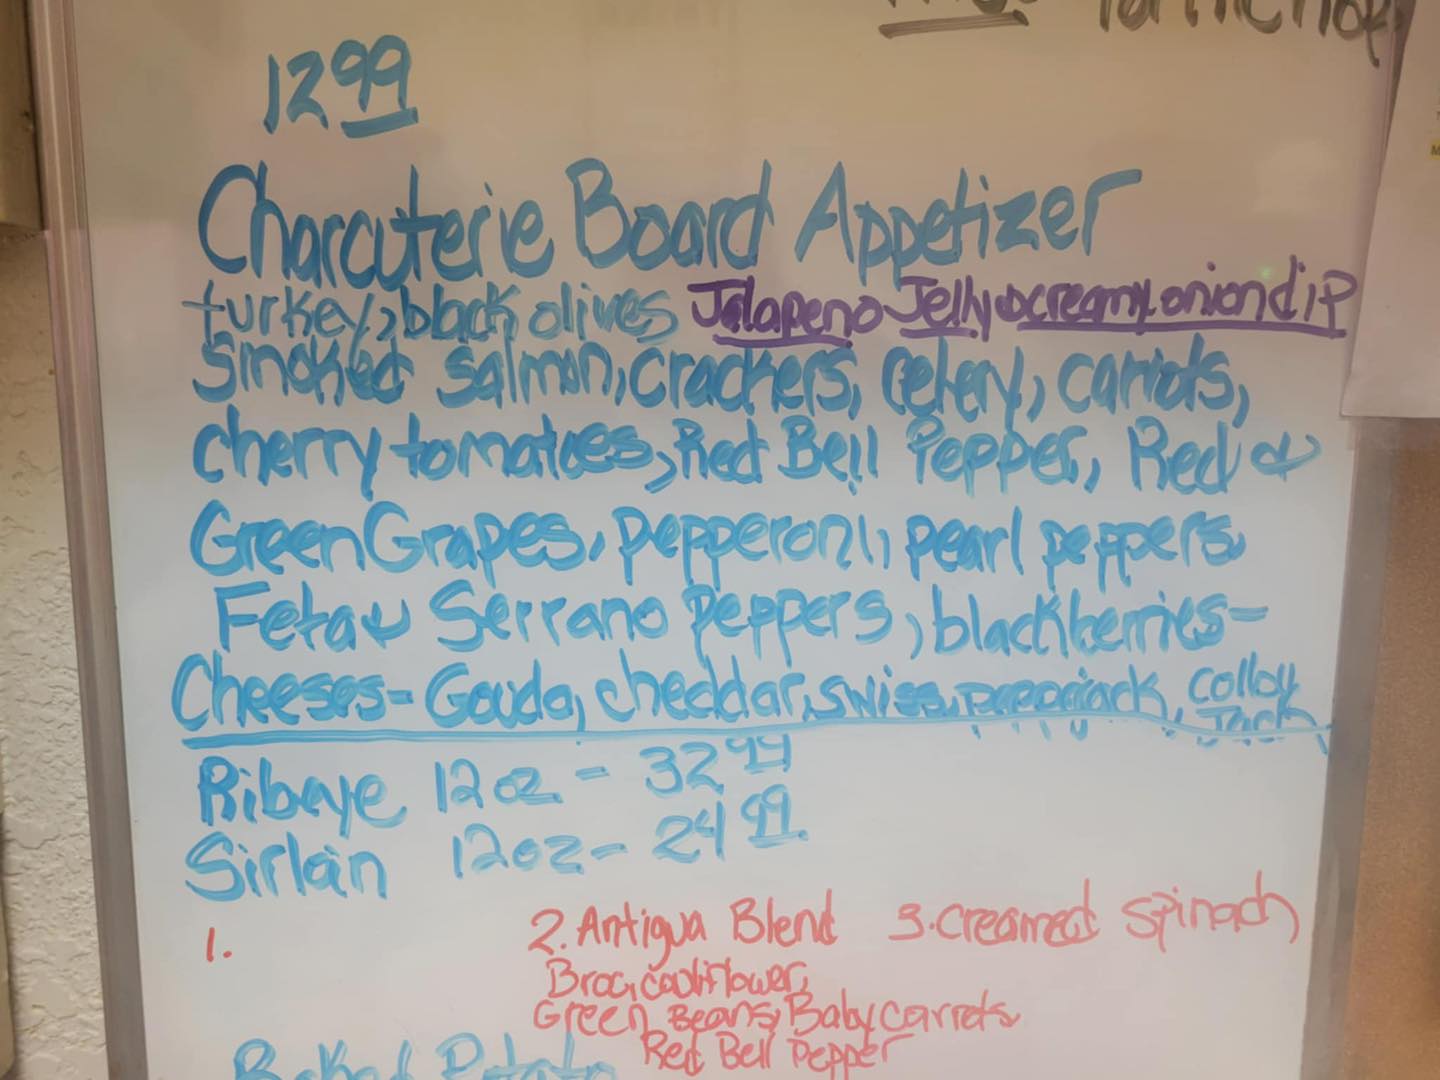 12 99
Charcuterie Board Appetizer
turkey, black olives Jalapeno Jelly & creamy onion dip
Smoked Salmon, crackers, celery, carrots,
cherry tomatoes, Red Bell Pepper, Red &
Green Grapes, pepperoni, pearl peppers,
Feta & Serrano peppers, blackberries-
Cheeses- Gouda, cheddar, swiss, pepperjack, Colby Jack
Ribeye 12oz - 32 99
Sirloin 12oz - 24 99
1. 2. Antigua Blend 3. creamed Spinach
Broc, cauliflower,
Green Beans, Baby carrots
Red Bell Pepper
Baked Potato